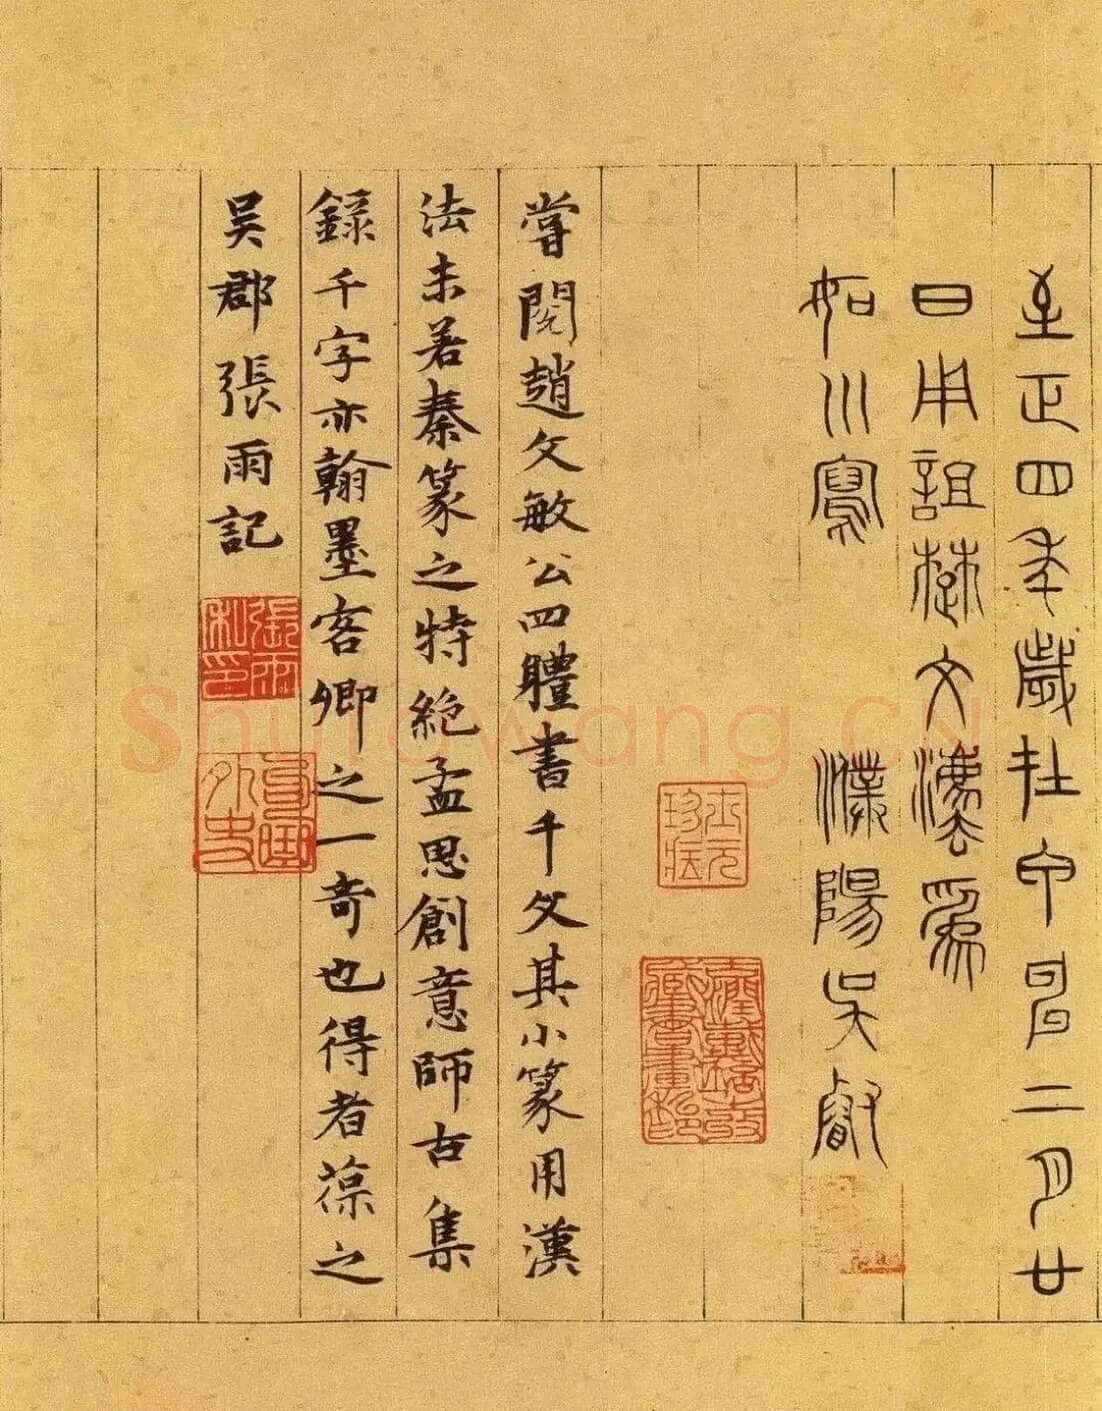 至正四年歲在甲申二月廿
日用詛楚文灋為
如川寫 濮陽吳叡
嘗閱趙文敏公四體書千文其小篆用漢
法未若秦篆之特絕孟思創意師古集
錄千字亦翰墨客卿之一奇也得者葆之
吳郡張雨記
張雨私印
Shufawang.CN